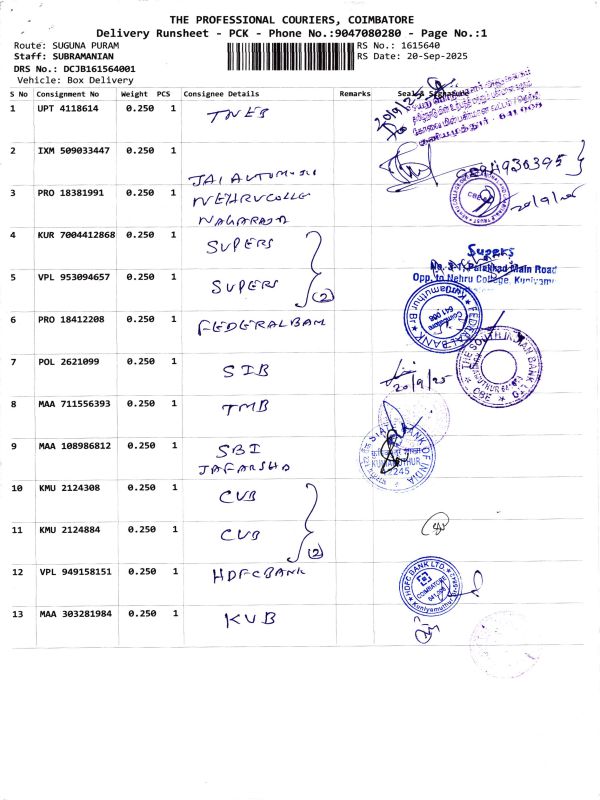 THE PROFESSIONAL COURIERS, COIMBATORE
Delivery Runsheet - PCK - Phone No.:9047080280 - Page No.:1
Route: SUGUNA PURAM
RS No.: 1615640
Staff: SUBRAMANIAN
RS Date: 20-Sep-2025
DRS No.: DCJB161564001
Vehicle: Box Delivery
S No Consignment No Weight PCS Consignee Details Remarks Seal & Signature
1 UPT 4118614 0.250 1 TNEB 20/9/25
2 IXM 509033447 0.250 1
JAI AUTOMOBI
3 PRO 18381991 0.250 1 NEHRU COLLE 20/9/25
NAGARAJA
4 KUR 7004412868 0.250 1 SUPERS
Supers
Palakkad Main Road
Opp. to Nehru College, Kuniyamu
5 VPL 953094657 0.250 1 SUPERS (2)
6 PRO 18412208 0.250 1 FEDERAL BAN
FEDERAL BANK
Coimbatore
641 008
7 POL 2621099 0.250 1 SIB 20/9/25
8 MAA 711556393 0.250 1 TMB
BANK OF INDIA
9 MAA 108986812 0.250 1 SBI
JAFARSHA
10 KMU 2124308 0.250 1 CUB
11 KMU 2124884 0.250 1 CUB (2)
12 VPL 949158151 0.250 1 HDFC BANK
HDFC BANK LTD.
COIMBATORE
Kuniyamuthur
13 MAA 303281984 0.250 1 KVB